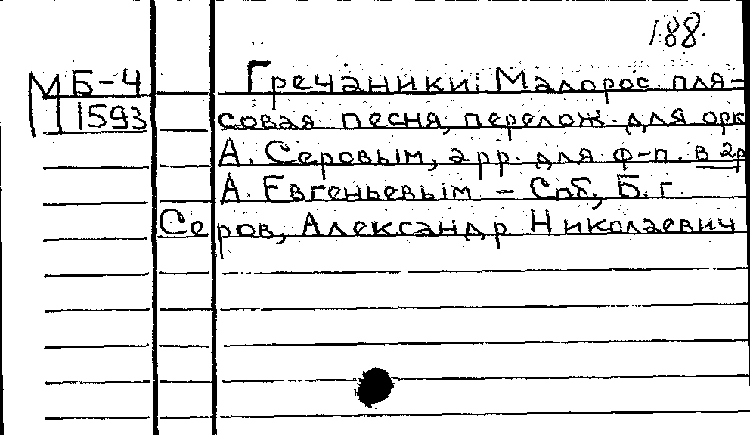 188.
МБ-4 Гречаники: Малорос. пля-
1593 совая песня, перелож. для орк
А. Серовым, арр. для ф-п. в 2р
А. Евгеньевым - Спб, Б. г.
Серов, Александр Николаевич